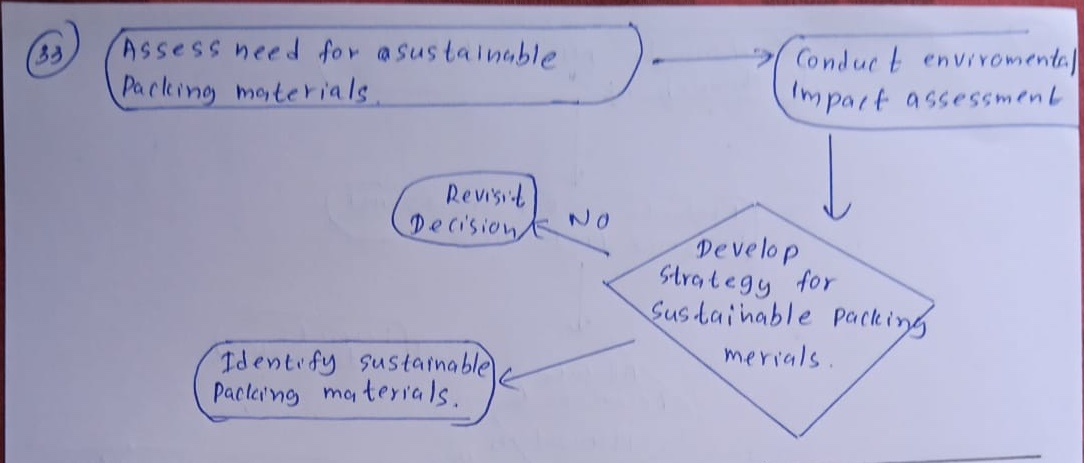 33
Assess need for a sustainable
Packing materials.
Conduct enviromental
Impact assessment
Revisit
Decision
NO
Develop
Strategy for
Sustainable packing
merials.
Identify sustainable
Packing materials.